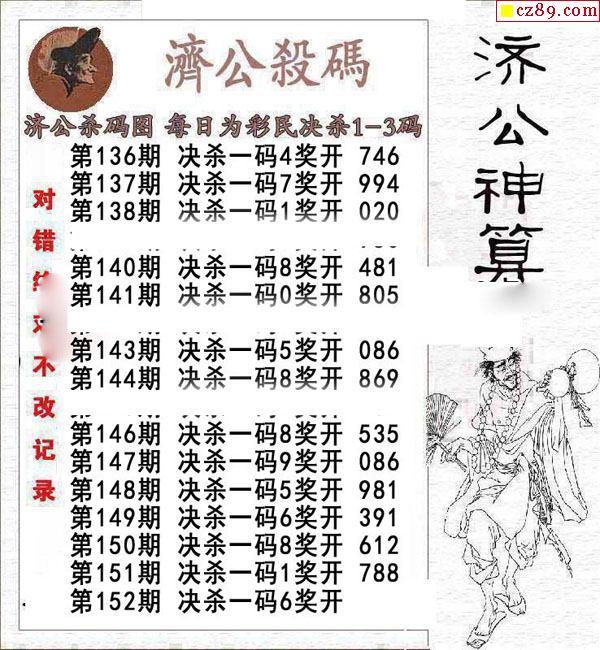 cz89.com
濟公殺碼
济公杀码图 每日为彩民决杀1-3码
第136期 决杀一码4奖开 746
第137期 决杀一码7奖开 994
第138期 决杀一码1奖开 020
第140期 决杀一码8奖开 481
第141期 决杀一码0奖开 805
第143期 决杀一码5奖开 086
第144期 决杀一码8奖开 869
第146期 决杀一码8奖开 535
第147期 决杀一码9奖开 086
第148期 决杀一码5奖开 981
第149期 决杀一码6奖开 391
第150期 决杀一码8奖开 612
第151期 决杀一码1奖开 788
第152期 决杀一码6奖开
对错 不改记录
济公神算